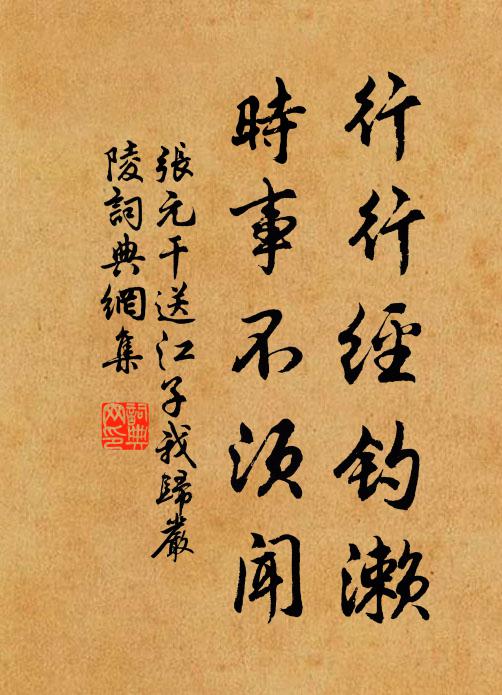 行行經釣瀨
時事不須聞
張元干送江子我歸嚴
陵詞典網集
詞典
网印